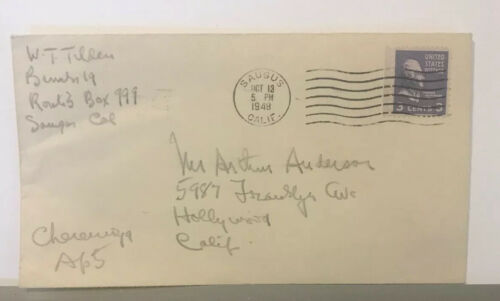 W. T. Tilden
Route 3 Box 999
Saugus Cal
SAUGUS
OCT 13
5 PM
1948
CALIF.
UNITED
STATES
POSTAGE
3 CENTS 3
Mr Arthur Anderson
5987 Franklyn Ave
Hollywood
Calif.
Ap5